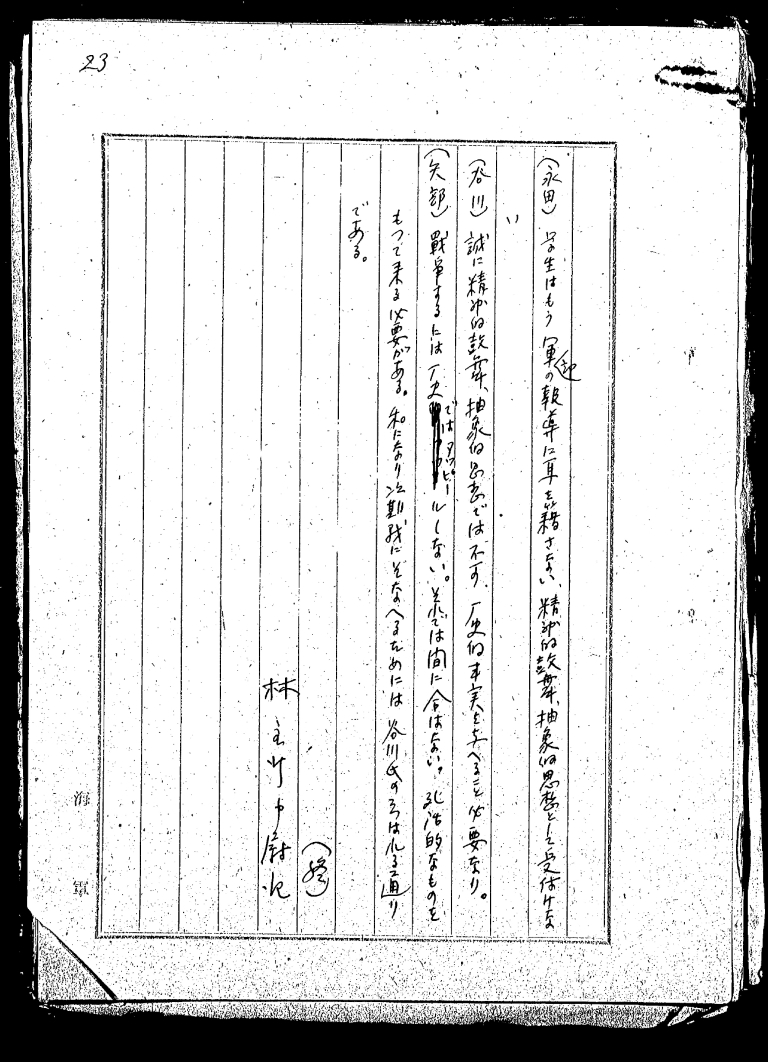 23
(永田) 学生はもう軍の報導に耳を籍さない、精神的鼓舞、抽象的思想として受付けな
い
(谷川) 誠に精神的鼓舞、抽象的思想では不可、歴史的事実を与へること必要なり。
(矢部) 戰争するには歴史ではアッピールしない。それでは間に合はない。政治的なものを
もって来る必要がある。和になり次期戦にそなへるためには谷川氏の云はれる通り
である。
(終)
林主計中尉記
海軍